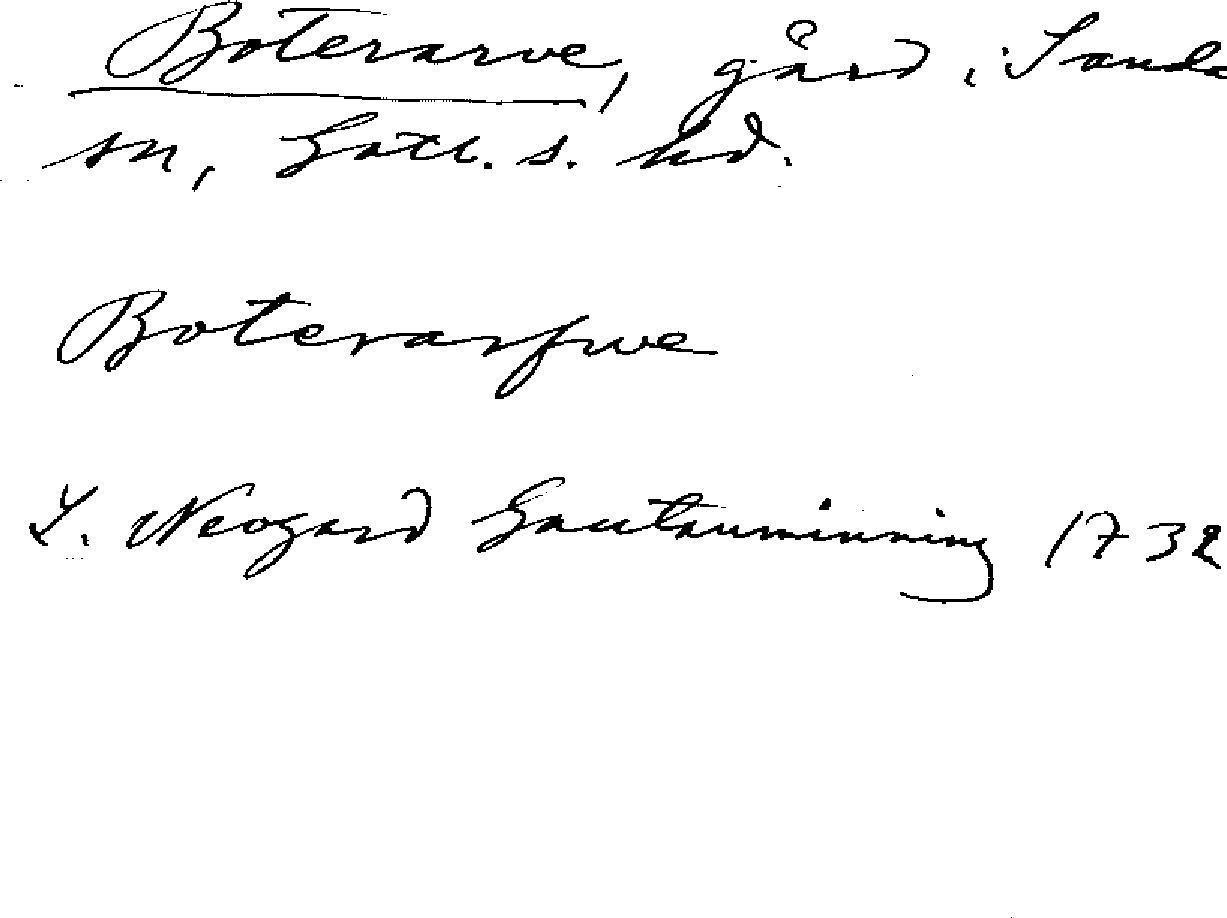 Boterarve, gård i Sanda
sn, Gotl. s. hd.
Boterarfwe
Y. Neogard Gautauminning 1732